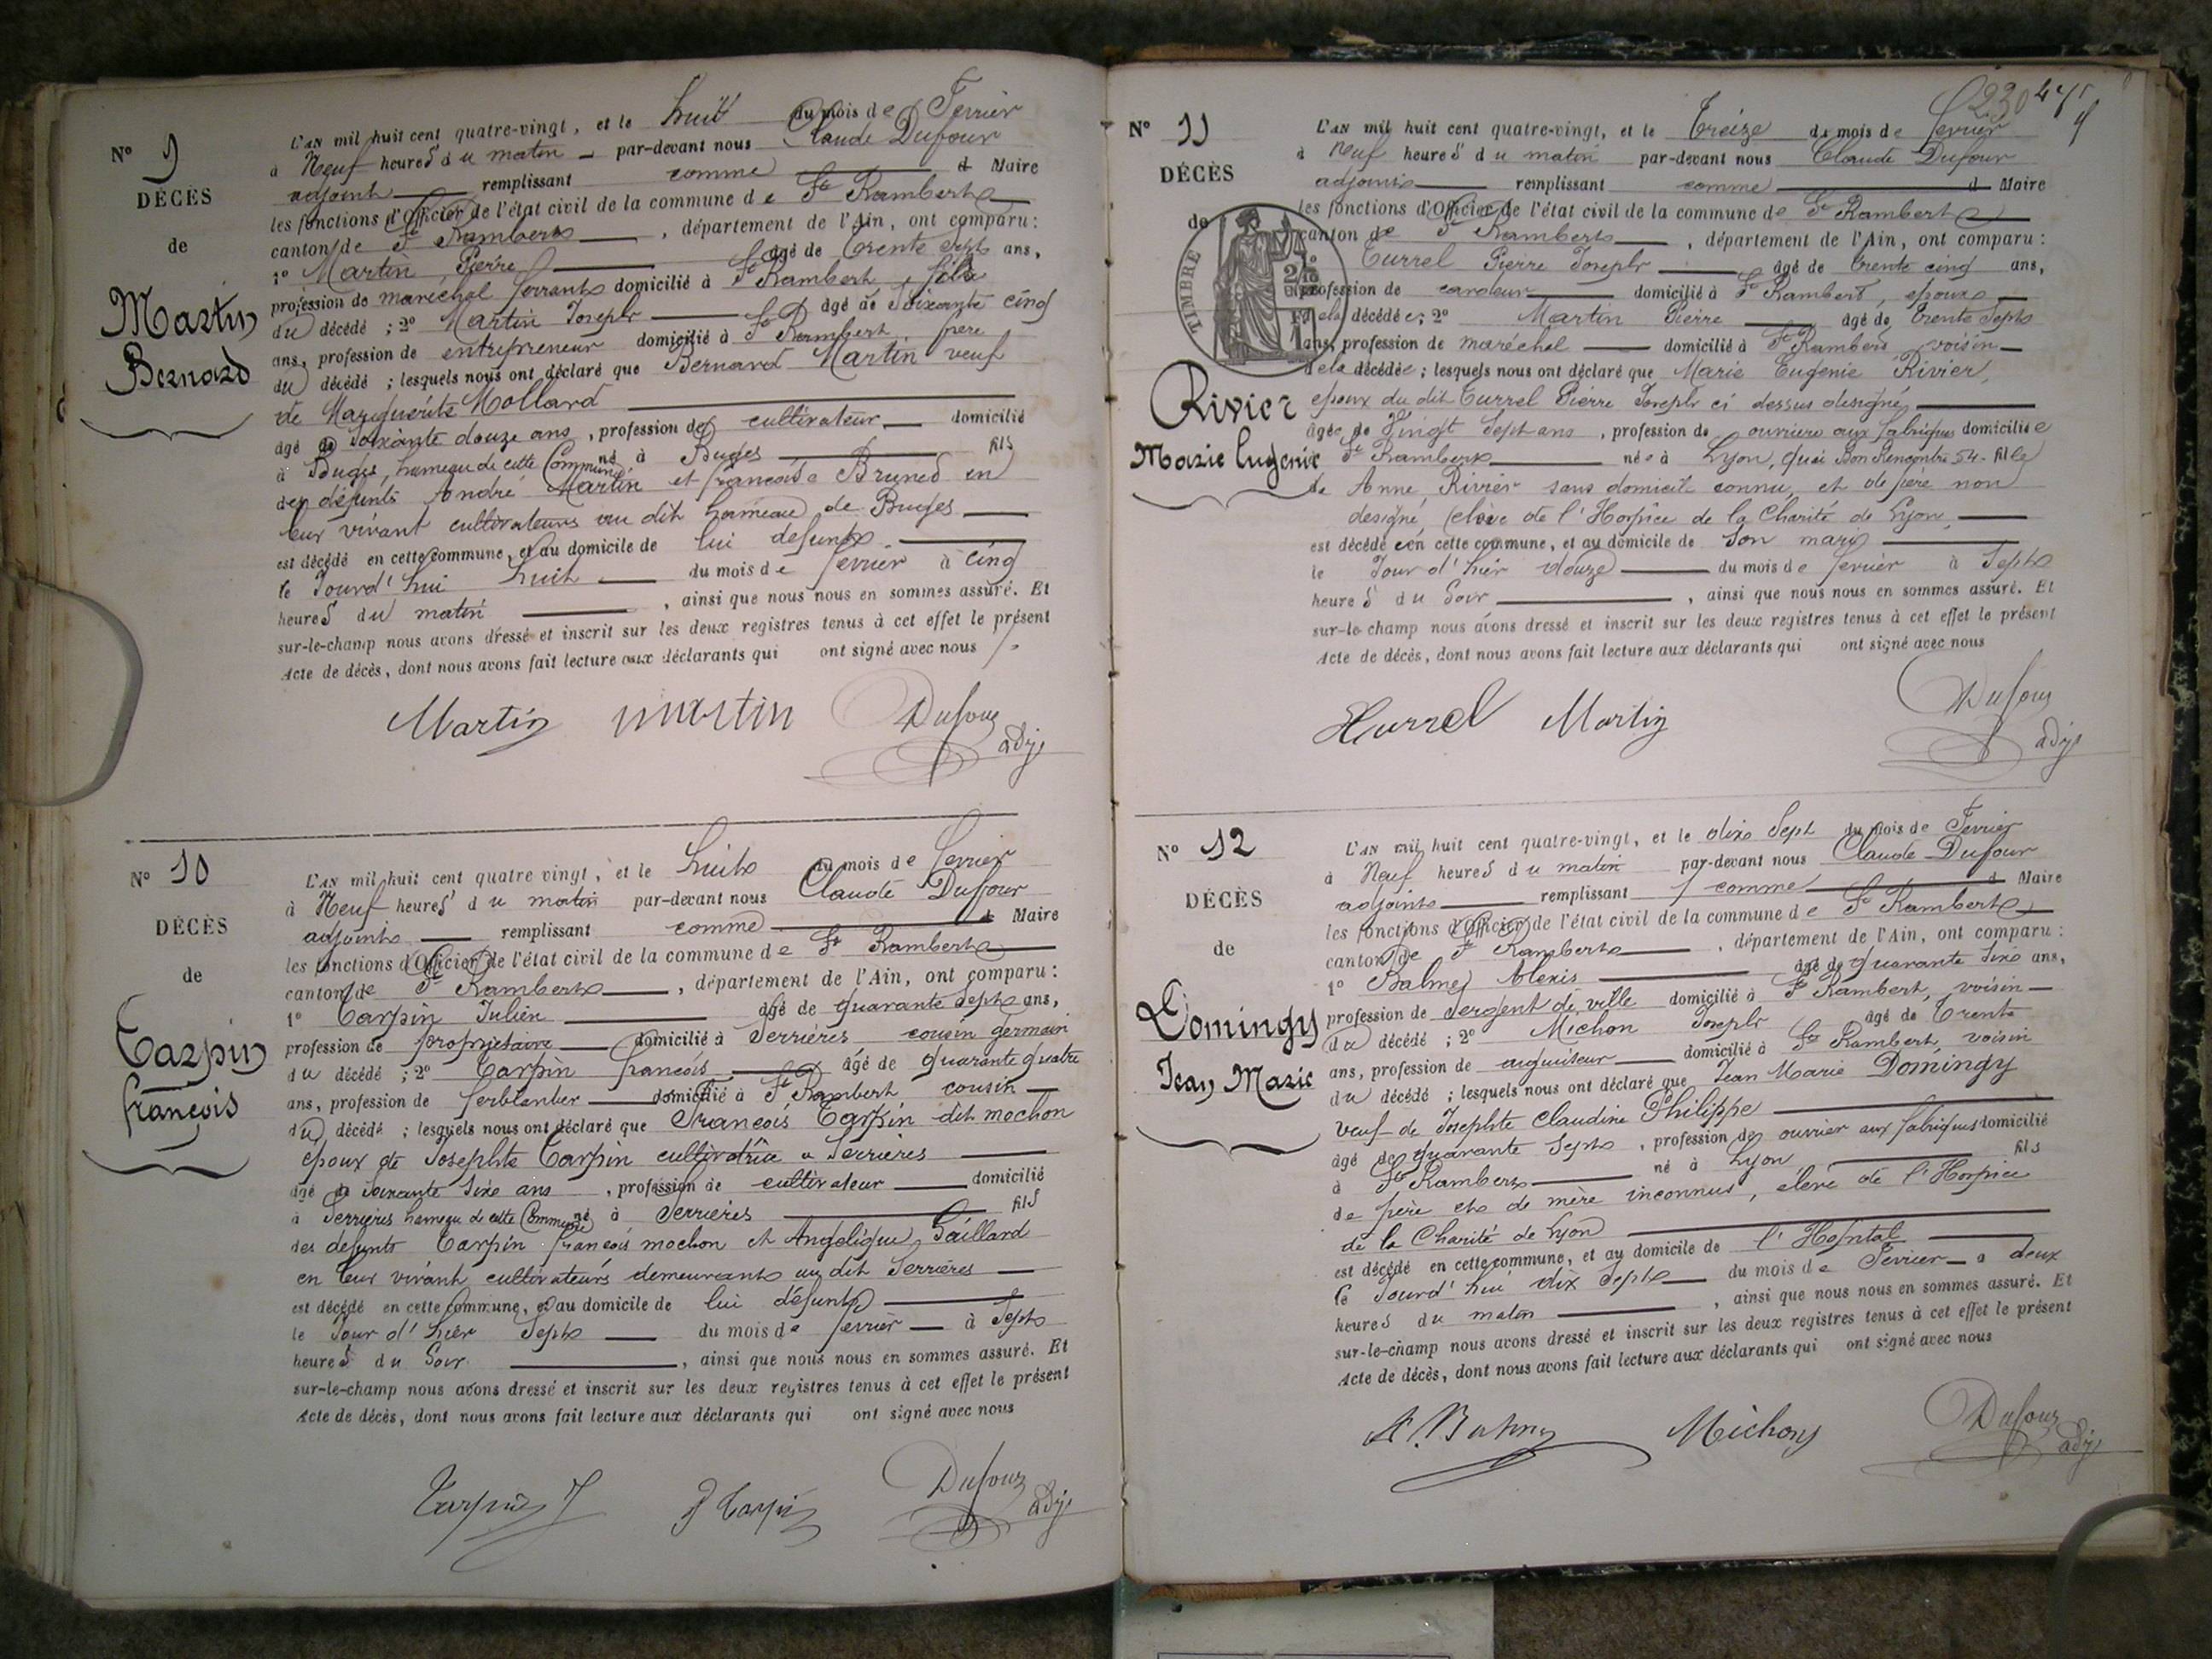 N° 9
DÉCÈS
de
Martin
Bernard
L'AN mil huit cent quatre-vingt, et le huit du mois de Fevrier
à Neuf heures du matin par-devant nous Claude Dufour
adjoint remplissant comme d Maire
les fonctions d'Officier de l'état civil de la commune de St Rambert
canton de St Rambert, département de l'Ain, ont comparu:
1° Martin Pierre âgé de trente sept ans,
profession de maréchal ferrant domicilié à St Rambert, fils
du décédé; 2° Martin Joseph âgé de Soixante cinq
ans, profession de entrepreneur domicilié à St Rambert frère
du décédé; lesquels nous ont déclaré que Bernard Martin veuf
de Marguerite Mollard
âgé de Soixante douze ans, profession de cultivateur domicilié
à Buges, hameau de cette Commune né à Buges fils
des défunts André Martin et francoise Bruned en
leur vivant cultivateurs au dit hameau de Buges
est décédé en cette commune, et au domicile de lui defunt
le Jourd'hui huit du mois de fevrier à Cinq
heures du matin, ainsi que nous nous en sommes assuré. Et
sur-le-champ nous avons dressé et inscrit sur les deux registres tenus à cet effet le présent
Acte de décès, dont nous avons fait lecture aux déclarants qui ont signé avec nous
Martin martin Dufour adj
N° 10
DÉCÈS
de
Tarpin
françois
L'AN mil huit cent quatre vingt, et le huit du mois de fevrier
à Neuf heures du matin par-devant nous Claude Dufour
adjoint remplissant comme d Maire
les fonctions d'Officier de l'état civil de la commune de St Rambert
canton de St Rambert, département de l'Ain, ont comparu:
1° Tarpin Julien âgé de quarante sept ans,
profession de propriétaire domicilié à Serrières cousin germain
du décédé; 2° Tarpin francois âgé de quarante quatre
ans, profession de ferblantier domicilié à St Rambert cousin
du décédé; lesquels nous ont déclaré que François Tarpin dit mochon
époux de Josephte Tarpin cultivatrice a Serrières
âgé de Soixante Six ans, profession de cultivateur domicilié
à Serrières hameau de cette Commune né à Serrières fils
des defunts Tarpin françois mochon et Angélique Gaillard
en leur vivant cultivateurs demeurant au dit Serrières
est décédé en cette commune, et au domicile de lui défunt
le Jour d'hier Sept du mois de fevrier à Sept
heures du Soir, ainsi que nous nous en sommes assuré. Et
sur-le-champ nous avons dressé et inscrit sur les deux registres tenus à cet effet le présent
Acte de décès, dont nous avons fait lecture aux déclarants qui ont signé avec nous
Tarpin J f Tarpin Dufour adj
230
N° 11
DÉCÈS
de
TIMBRE
Rivier
Marie Eugenie
L'AN mil huit cent quatre-vingt, et le Treize du mois de fevrier
à Neuf heures du matin par-devant nous Claude Dufour
adjoint remplissant comme d Maire
les fonctions d'Officier de l'état civil de la commune de St Rambert
canton de St Rambert, département de l'Ain, ont comparu:
1° Turrel Pierre Joseph âgé de trente cinq ans,
profession de cardeur domicilié à St Rambert, epoux
de la décédée; 2° Martin Pierre âgé de trente sept
ans, profession de maréchal domicilié à St Rambert voisin
de la décédée; lesquels nous ont déclaré que Marie Eugenie Rivier,
epoux du dit Turrel Pierre Joseph ci dessus designé,
âgée de Vingt Sept ans, profession de ouvriere aux fabriques domiciliée
St Rambert née à Lyon, quai Bon Rencontre 54 fille
de Anne Rivier sans domicile connu, et de père non
designé, élève de l'Hospice de la Charité de Lyon
est décédée en cette commune, et au domicile de Son mari
le Jour d'hier douze du mois de fevrier à Sept
heures du Soir, ainsi que nous nous en sommes assuré. Et
sur-le-champ nous avons dressé et inscrit sur les deux registres tenus à cet effet le présent
Acte de décès, dont nous avons fait lecture aux déclarants qui ont signé avec nous
Turrel Martin Dufour adj
N° 12
DÉCÈS
de
Domingy
Jean Marie
L'AN mil huit cent quatre-vingt, et le dix Sept du mois de Fevrier
à Neuf heures du matin par-devant nous Claude Dufour
adjoint remplissant comme d Maire
les fonctions d'Officier de l'état civil de la commune de St Rambert
canton de St Rambert, département de l'Ain, ont comparu:
1° Balmey Alexis âgé de quarante Six ans,
profession de Sergent de ville domicilié à St Rambert, voisin
du décédé; 2° Michon Joseph âgé de Trente
ans, profession de aiguiseur domicilié à St Rambert, voisin
du décédé; lesquels nous ont déclaré que Jean Marie Domingy
veuf de Josephte Claudine Philippe
âgé de quarante Sept, profession de ouvrier aux fabriques domicilié
à St Rambert né à Lyon fils
de père et de mère inconnus, élevé de l'Hospice
de la Charité de Lyon
est décédé en cette commune, et au domicile de l'Hopital
le Jourd'hui dix Sept du mois de Fevrier a deux
heures du matin, ainsi que nous nous en sommes assuré. Et
sur-le-champ nous avons dressé et inscrit sur les deux registres tenus à cet effet le présent
Acte de décès, dont nous avons fait lecture aux déclarants qui ont signé avec nous
Michon Dufour adj